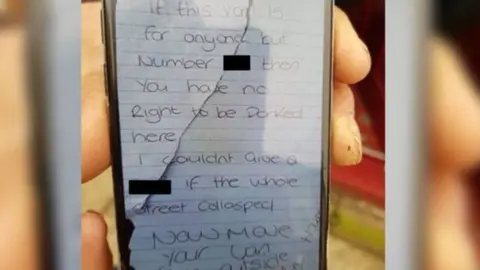 If this van is
for anyone but
Number then
You have no
Right to be Parked
here
I couldnt Give a
if the whole
Street Collapsed
Now Move
Your Van
outside